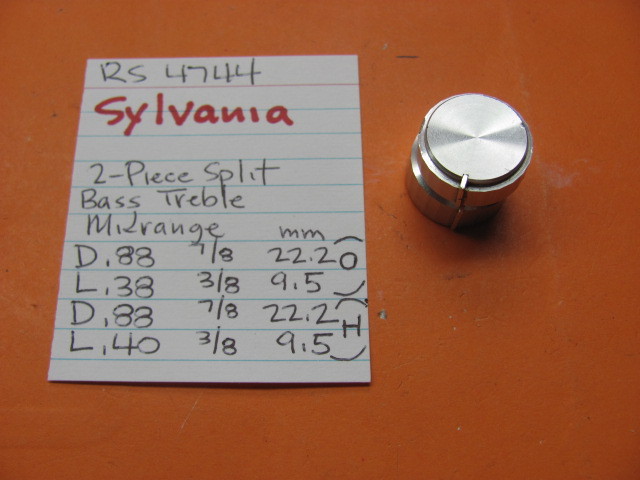 RS 4744
Sylvania
2-Piece Split
Bass Treble
Midrange mm
D.88 7/8 22.2 O
L.38 3/8 9.5
D.88 7/8 22.2 H
L.40 3/8 9.5